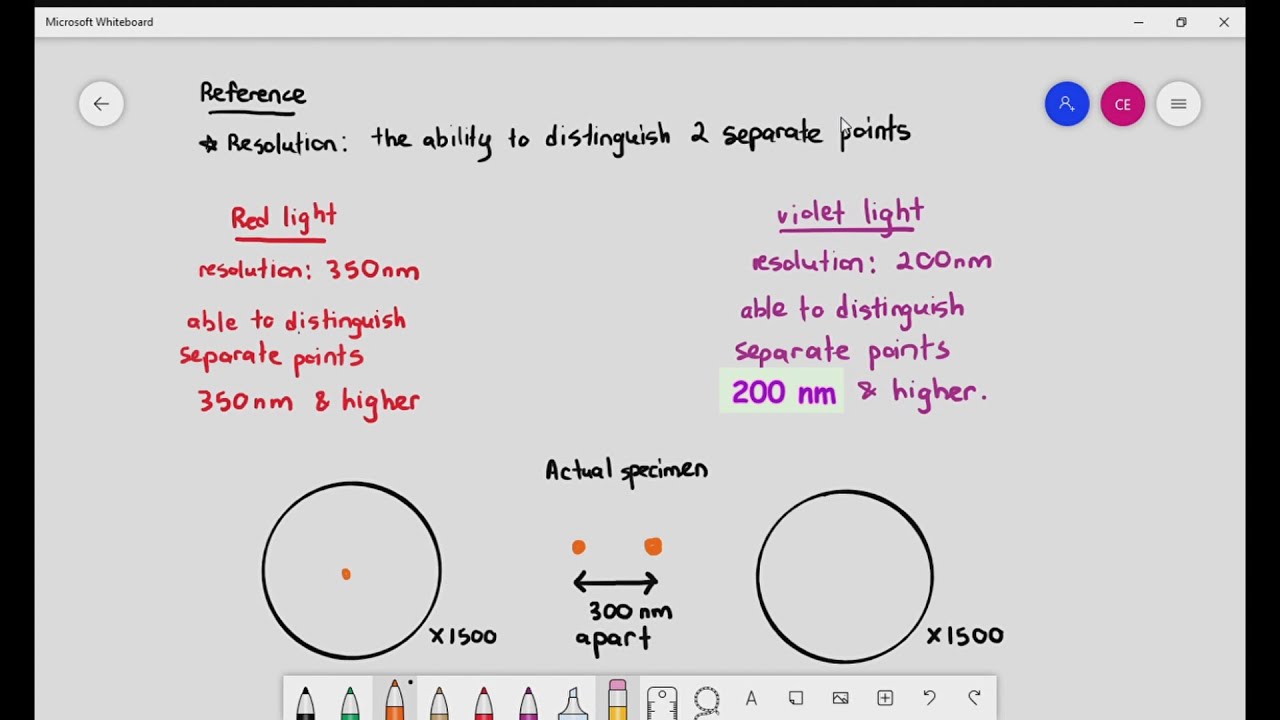 Microsoft Whiteboard
Reference
CE
* Resolution: the ability to distinguish 2 separate points
Red light
resolution: 350nm
able to distinguish
separate points
350nm & higher
violet light
resolution: 200nm
able to distinguish
separate points
200 nm & higher.
Actual specimen
300 nm
apart
X1500
X1500
A